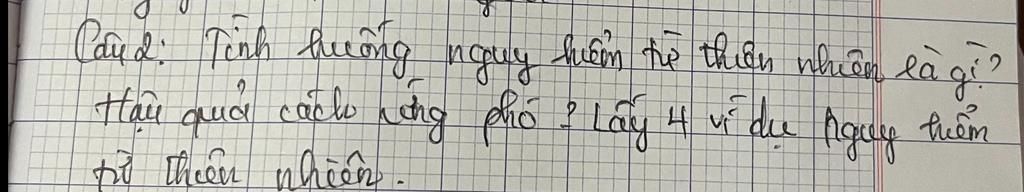 Câu 2: Tình huống nguy hiểm từ thiên nhiên là gì?
Hậu quả cách ứng phó? Lấy 4 ví dụ nguy hiểm
từ thiên nhiên.